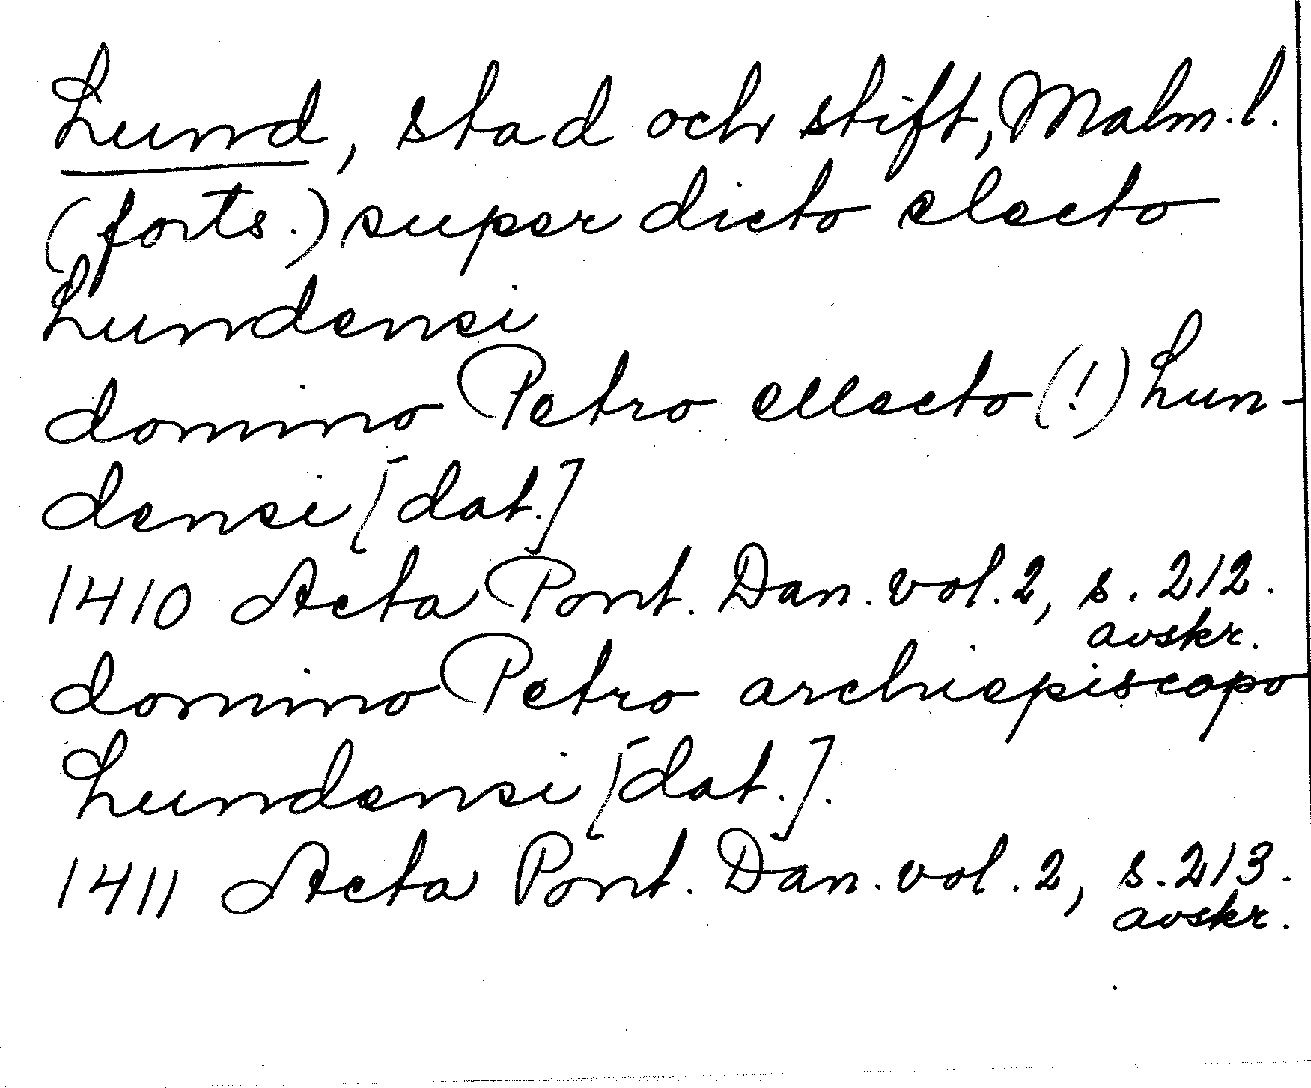 Lund, stad och stift, Malm. l.
(forts.) super dicto electo
Lundensi
domino Petro ellecto (!) Lun-
densi [dat.]
1410 Acta Pont. Dan. vol. 2, s. 212.
avskr.
domino Petro archiepiscopo
Lundensi [dat.].
1411 Acta Pont. Dan. vol. 2, s. 213.
avskr.